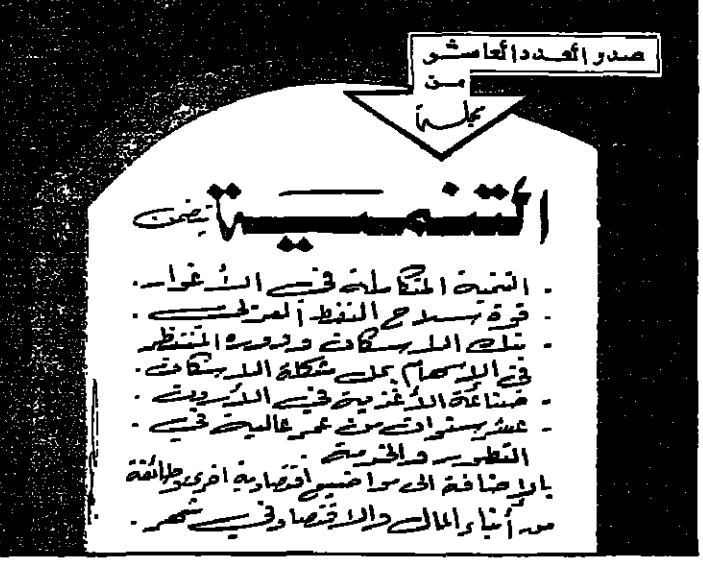 صدر العدد العاشر
من
مجلة
التنمية تتضمن
- التنمية المتكاملة في الأغوار.
- قوة سلاح النفط العربي.
- بنك الاسكان ودوره المنتظر
في الاسهام بحل مشكلة الاسكان.
- صناعة الأغذية في الأردن.
- عشر سنوات من عمر عالية في
التطوير والخدمة
بالإضافة الى مواضيع اقتصادية اخرى وطائفة
من أنباء المال والاقتصاد في شهر.